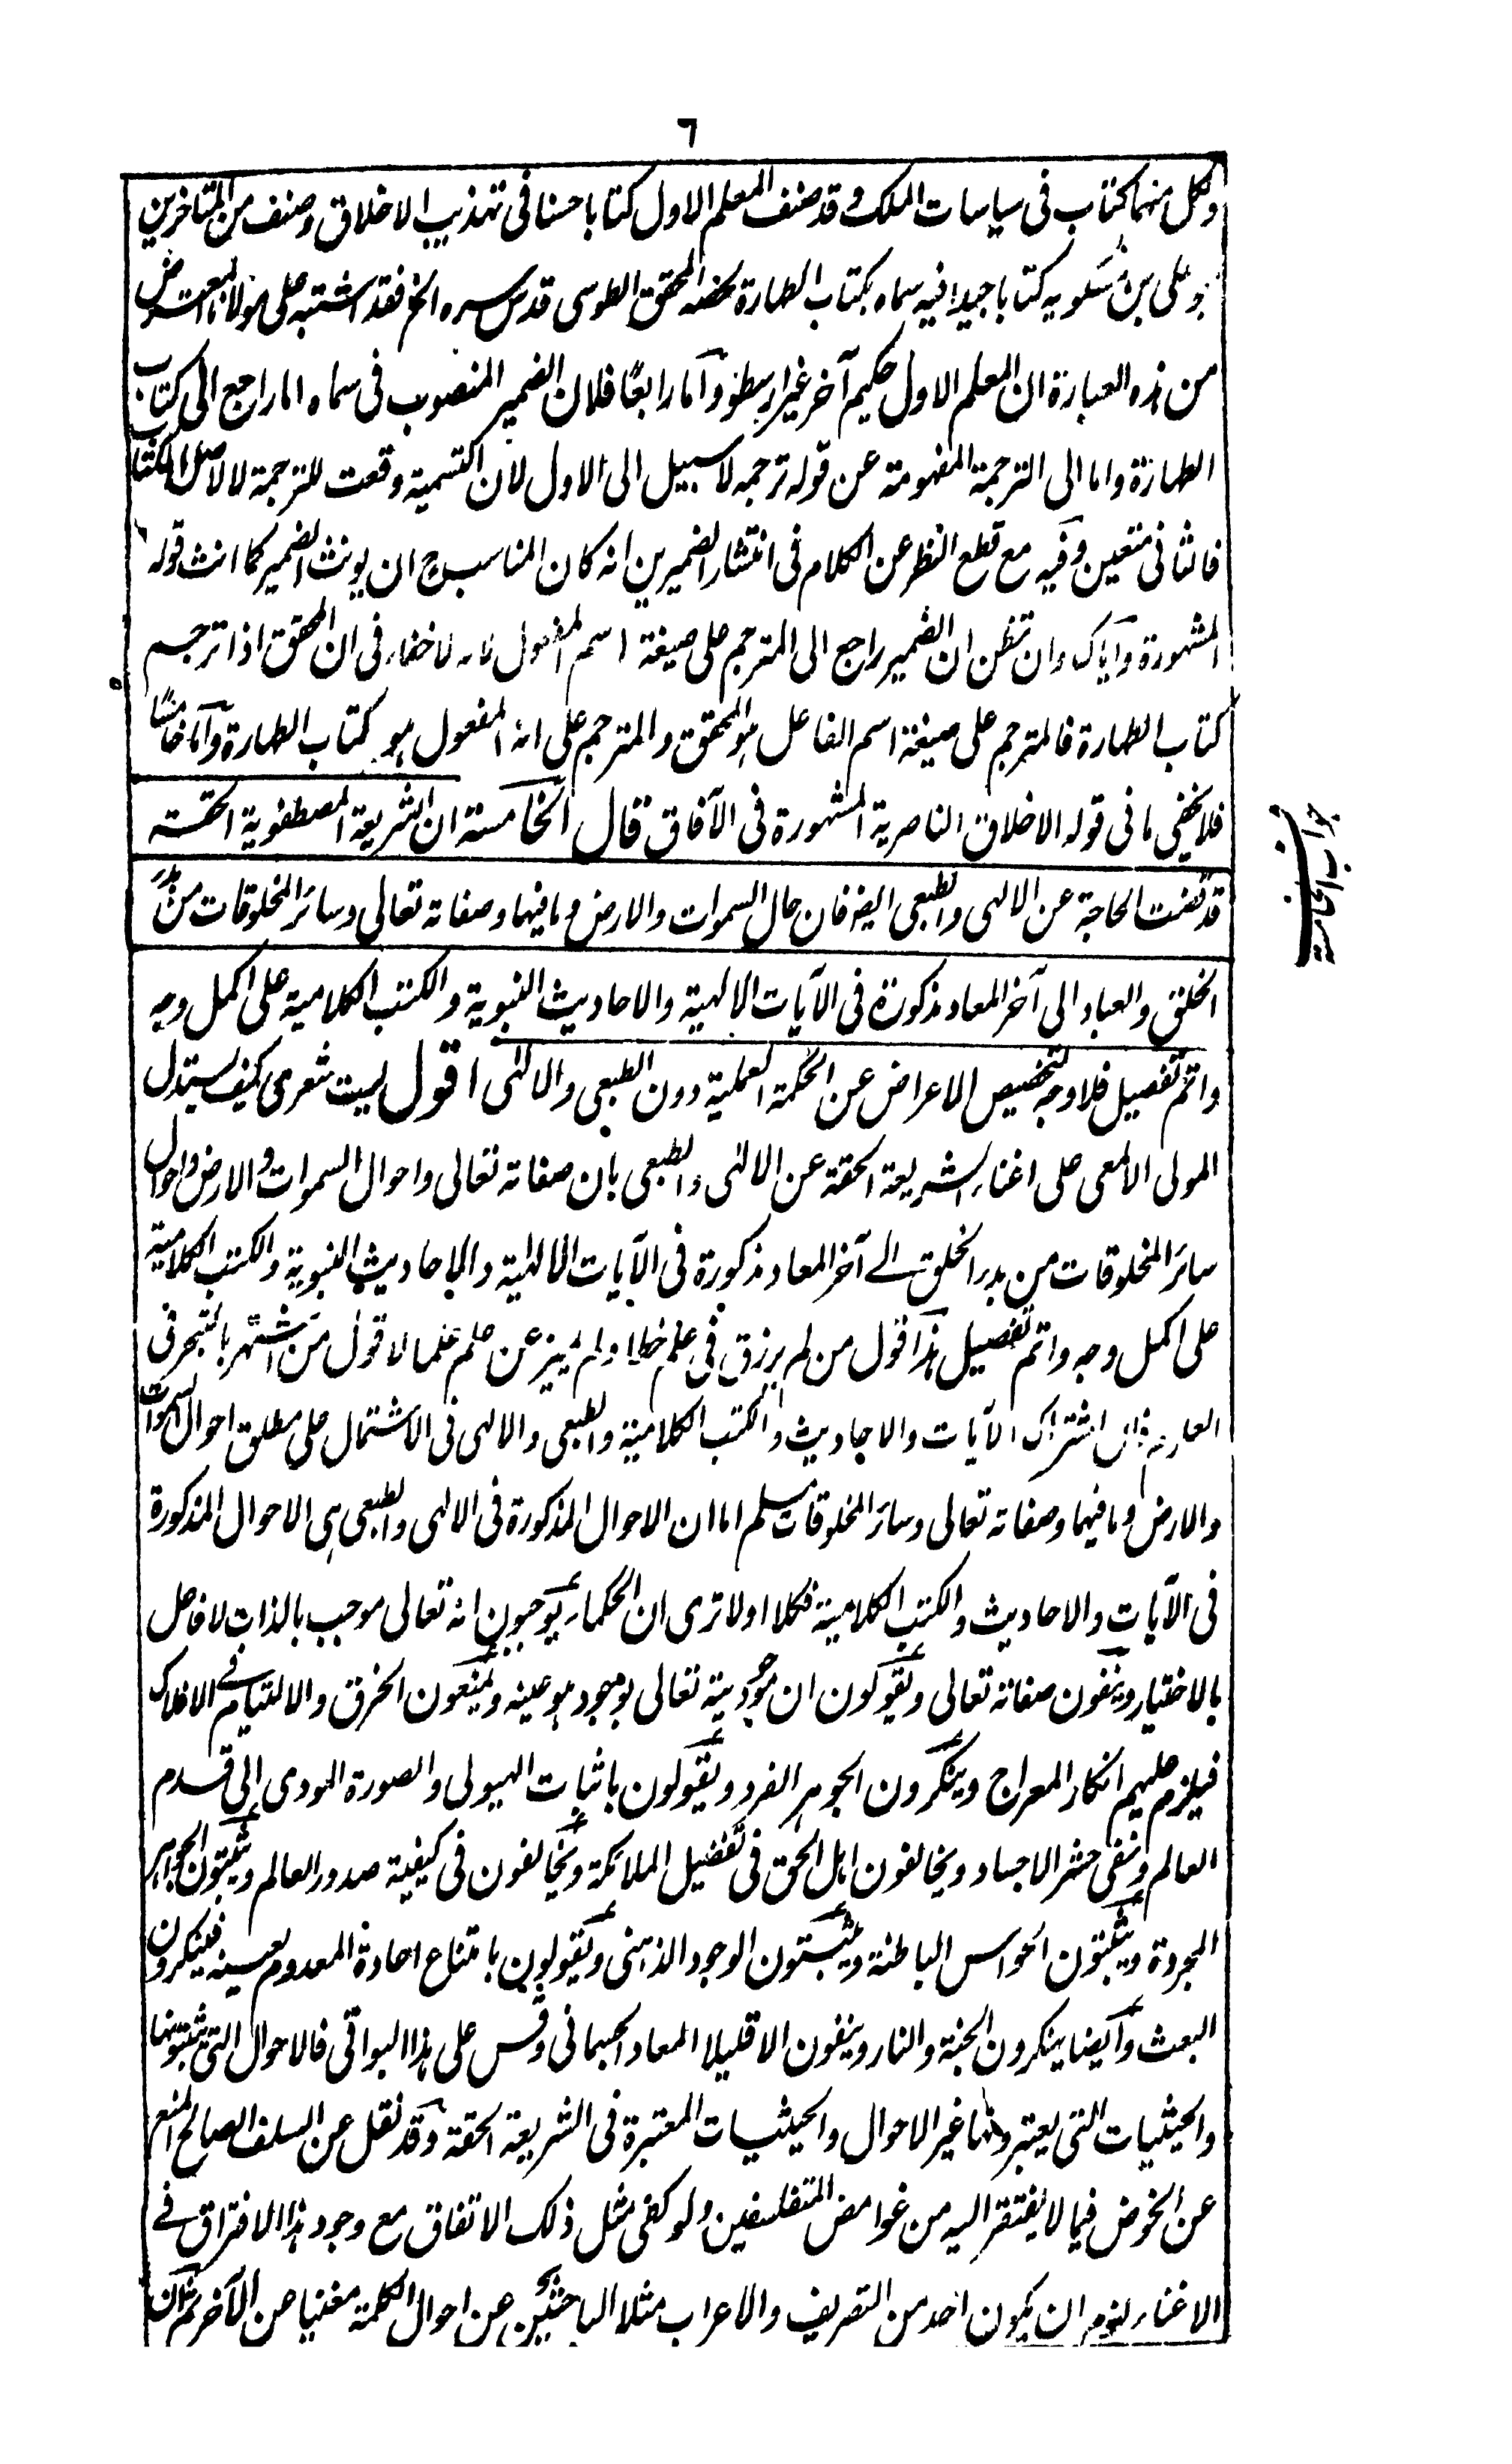 ٦
ولكل منهما كتاب فى سياسات الملك وقد صنف المعلم الاول كتابا حسنا فى تهذيب الاخلاق وصنف من المتاخرين
بوعلى بن مسكويه كتابا جيدا فيه سماه بكتاب الطهارة لخصه المحقق الطوسى قدس سره الخ فقد اشتبه على مولانا المعترض
من هذه العبارة ان المعلم الاول حكيم آخر غير ارسطو وأما رابعًا فلان الضمير المنصوب فى سماه اما راجع الى كتاب
الطهارة واما الى الترجمة المفهومة عن قوله ترجمه لا سبيل الى الاول لان التسمية وقعت للترجمة لا لاصل الكتاب
فالثانى متعين وفيه مع قطع النظر عن الكلام فى انتشار الضميرين انه كان المناسب ح ان يونث الضمير كما انث قوله
المشهورة وآياك وان تظن ان الضمير راجع الى المترجم على صيغة اسم المفعول لانه لا خفاء فى ان المحقق اذا ترجم
كتاب الطهارة فالمترجم على صيغة اسم الفاعل هو المحقق والمترجم على انه المفعول هو كتاب الطهارة وأما خامسًا
فلا يخفى ما فى قوله الاخلاق الناصرية المشهورة فى الآفاق قال الخامسة ان الشريعة المصطفوية الحقة
قد قضت الحاجة عن الالهى والطبعى ايضا فان حال السموات والارض وما فيها وصفاته تعالى وسائر المخلوقات من بدء
الخلق والعباد الى آخر المعاد مذكورة فى الآيات الالهية والاحاديث النبوية والكتب الكلامية على اكمل وجه
واتم تفصيل فلا وجه لتخصيص الاعراض عن الحكمة العملية دون الطبعى والالهى اقول ليت شعرى كيف يستدل
المولى الالمعى على اغناء الشريعة الحقة عن الالهى والطبعى بان صفاته تعالى واحوال السموات والارض واحوال
سائر المخلوقات من بدء الخلق الے آخر المعاد مذكورة فى الآيات الالهية والاحاديث النبوية والكتب الكلامية
على اكمل وجه واتم تفصيل هذا قول من لم يرزق فى علم خلاد ولم يميز عن علم علما لا قول من اشتهر بالتبحر فى
العلوم فان اشتراك الآيات والاحاديث والكتب الكلامية والطبعى والالهى فى الاشتمال على مطلق احوال السموات
والارض وما فيها وصفاته تعالى وسائر المخلوقات مسلم اما ان الاحوال المذكورة فى الالهى والطبعى هى الاحوال المذكورة
فى الآيات والاحاديث والكتب الكلامية فكلا اولا ترى ان الحكماء يوجبون انه تعالى موجب بالذات لا فاعل
بالاختيار وينفون صفاته تعالى ويقولون ان موجودية تعالى بوجود هو عينه ويمنعون الخرق والالتيام فے الافلاك
فيلزم عليهم انكار المعراج وينكرون الجوهر الفرد ويقولون باثبات الهيولى والصورة المودى الى قدم
العالم ونفى حشر الاجساد ويخالفون اهل الحق فى تفضيل الملائكة ويخالفون فى كيفية صدور العالم ويثبتون الجواهر
المجردة ويثبتون الحواس الباطنة ويثبتون الوجود الذهنى ويقولون بامتناع اعادة المعدوم بعينه فينكرون
البعث وأيضا ينكرون الجنة والنار وينفون الا قليلا المعاد الجسمانى وقس على هذا البواقى فالاحوال التى يثبتونها
والحيثيات التى يعتبرونها غير الاحوال والحيثيات المعتبرة فى الشريعة الحقة وقد نقل عن السلف الصالح المنع
عن الخوض فيما لا يفتقر اليه من غوامض المتفلسفين ولو كفى مثل ذلك الاتفاق مع وجود هذا الافتراق فے
الاغناء لزم ان يكون احد من التصريف والاعراب مثلا الباحثين عن احوال الكلمة مغنيا عن الآخر ثم ان
جواب الخامسة